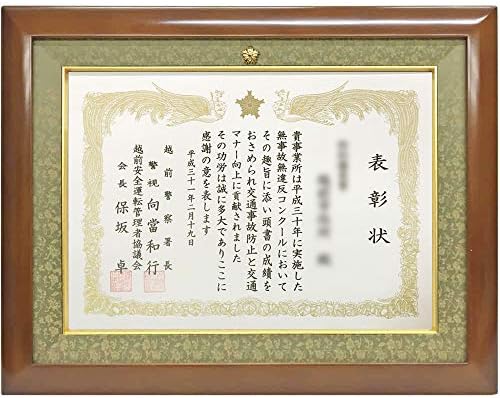 表彰状
貴事業所は平成三十年に実施した
無事故無違反コンクールにおいて
その趣旨に添い頭書の成績を
おさめられ交通事故防止と交通
マナー向上に貢献されました
その功労は誠に多大でありここに
感謝の意を表します
平成三十一年二月十九日
越前警察署長
警視 向當和行
越前安全運転管理者協議会
会長 保坂卓